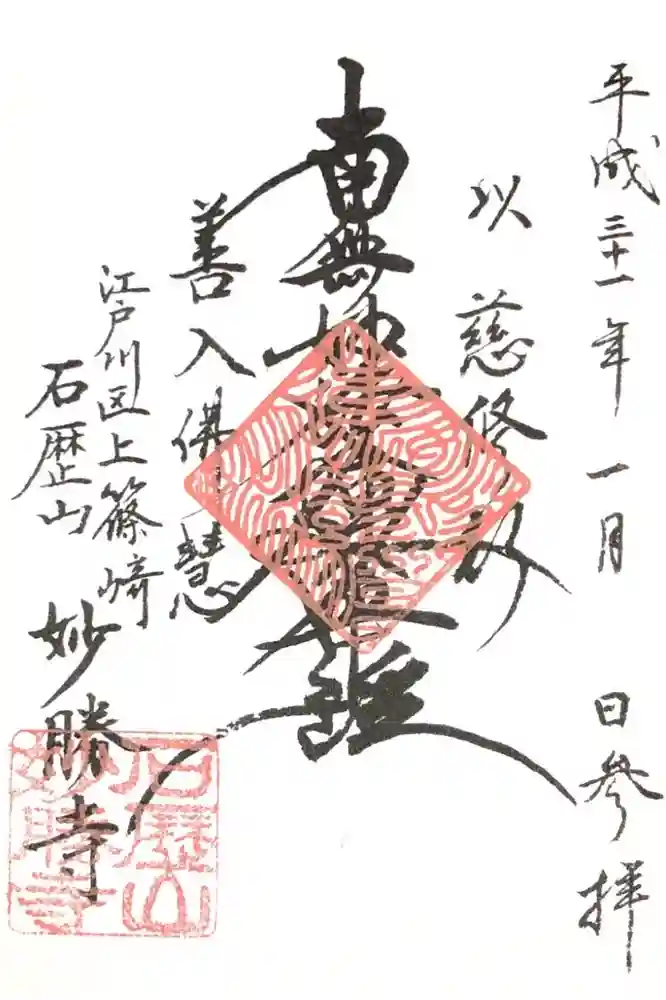 平成三十一年一月 日参拝
以慈修身
南無妙法蓮華經
善入佛慧
江戸川区上篠崎
石歴山
妙勝寺
石歴山
妙勝寺